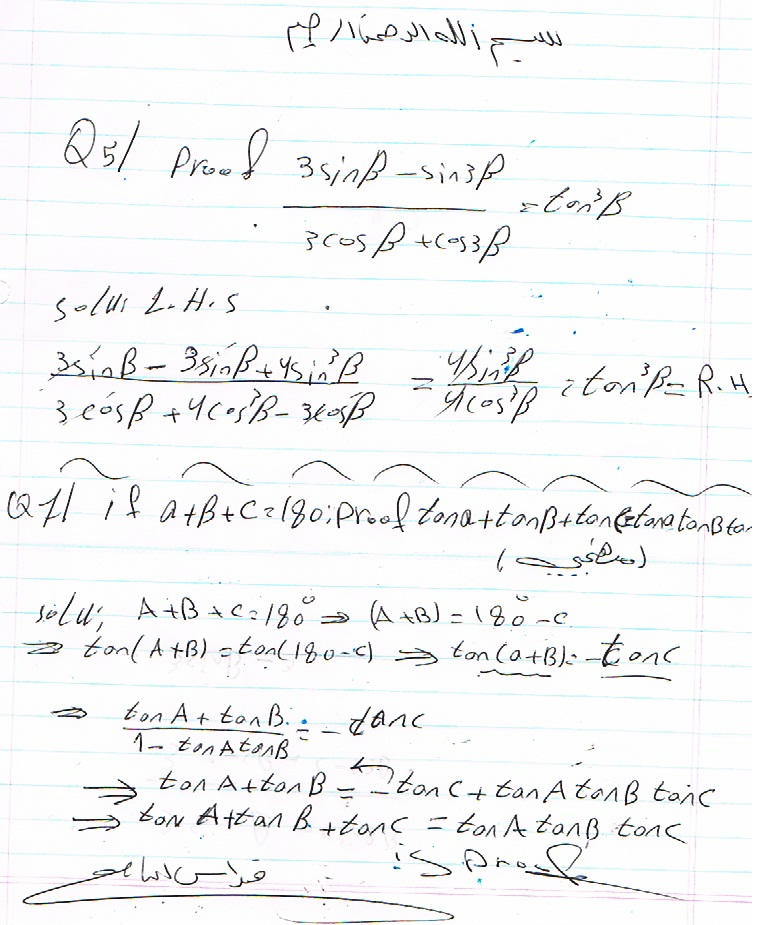 بسم الله الرحمن الرحيم
Q5/ Proof (3sinβ - sin3β)/(3cosβ + cos3β) = tan³β
solu: L.H.S
(3sinβ - 3sinβ + 4sin³β)/(3cosβ + 4cos³β - 3cosβ) = 4sin³β/4cos³β = tan³β = R.H.
Q7/ if a+B+C=180; Proof tana+tanB+tanC=tanatanBtan
solu; A+B+C=180° ⇒ (A+B)=180°-C
⇒ tan(A+B)=tan(180-C) ⇒ tan(a+B)=-tanC
⇒ (tanA+tanB)/(1-tanAtanB) = -tanC
⇒ tanA+tanB = -tanC+tanA tanB tanC
⇒ tanA+tanB+tanC = tanA tanB tanC
is Proof